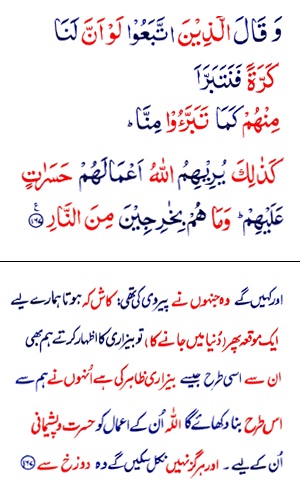 وَ قَالَ الَّذِيْنَ اتَّبَعُوْا لَوْ اَنَّ لَنَا
كَرَّةً فَنَتَبَرَّاَ
مِنْهُمْ كَمَا تَبَرَّءُوْا مِنَّا ؕ
كَذٰلِكَ يُرِيْهِمُ اللّٰهُ اَعْمَالَهُمْ حَسَرٰتٍ
عَلَيْهِمْ ؕ وَمَا هُمْ بِخٰرِجِيْنَ مِنَ النَّارِ ۧ ﴿۱۶۷﴾
اور کہیں گے وہ جنہوں نے پیروی کی تھی: کاش کہ ہوتا ہمارے لیے
ایک موقعہ پھر (دُنیا میں جانے کا) تو بیزاری کا اظہار کرتے ہم بھی
ان سے اسی طرح جیسے بیزاری ظاہر کی ہے اُنہوں نے ہم سے
اس طرح بنا دکھائے گا اللہ اُن کے اعمال کو حسرت و پشیمانی
اُن کے لیے۔ اور ہرگز نہیں نکل سکیں گے وہ دوزخ سے ﴿۱۶۷﴾